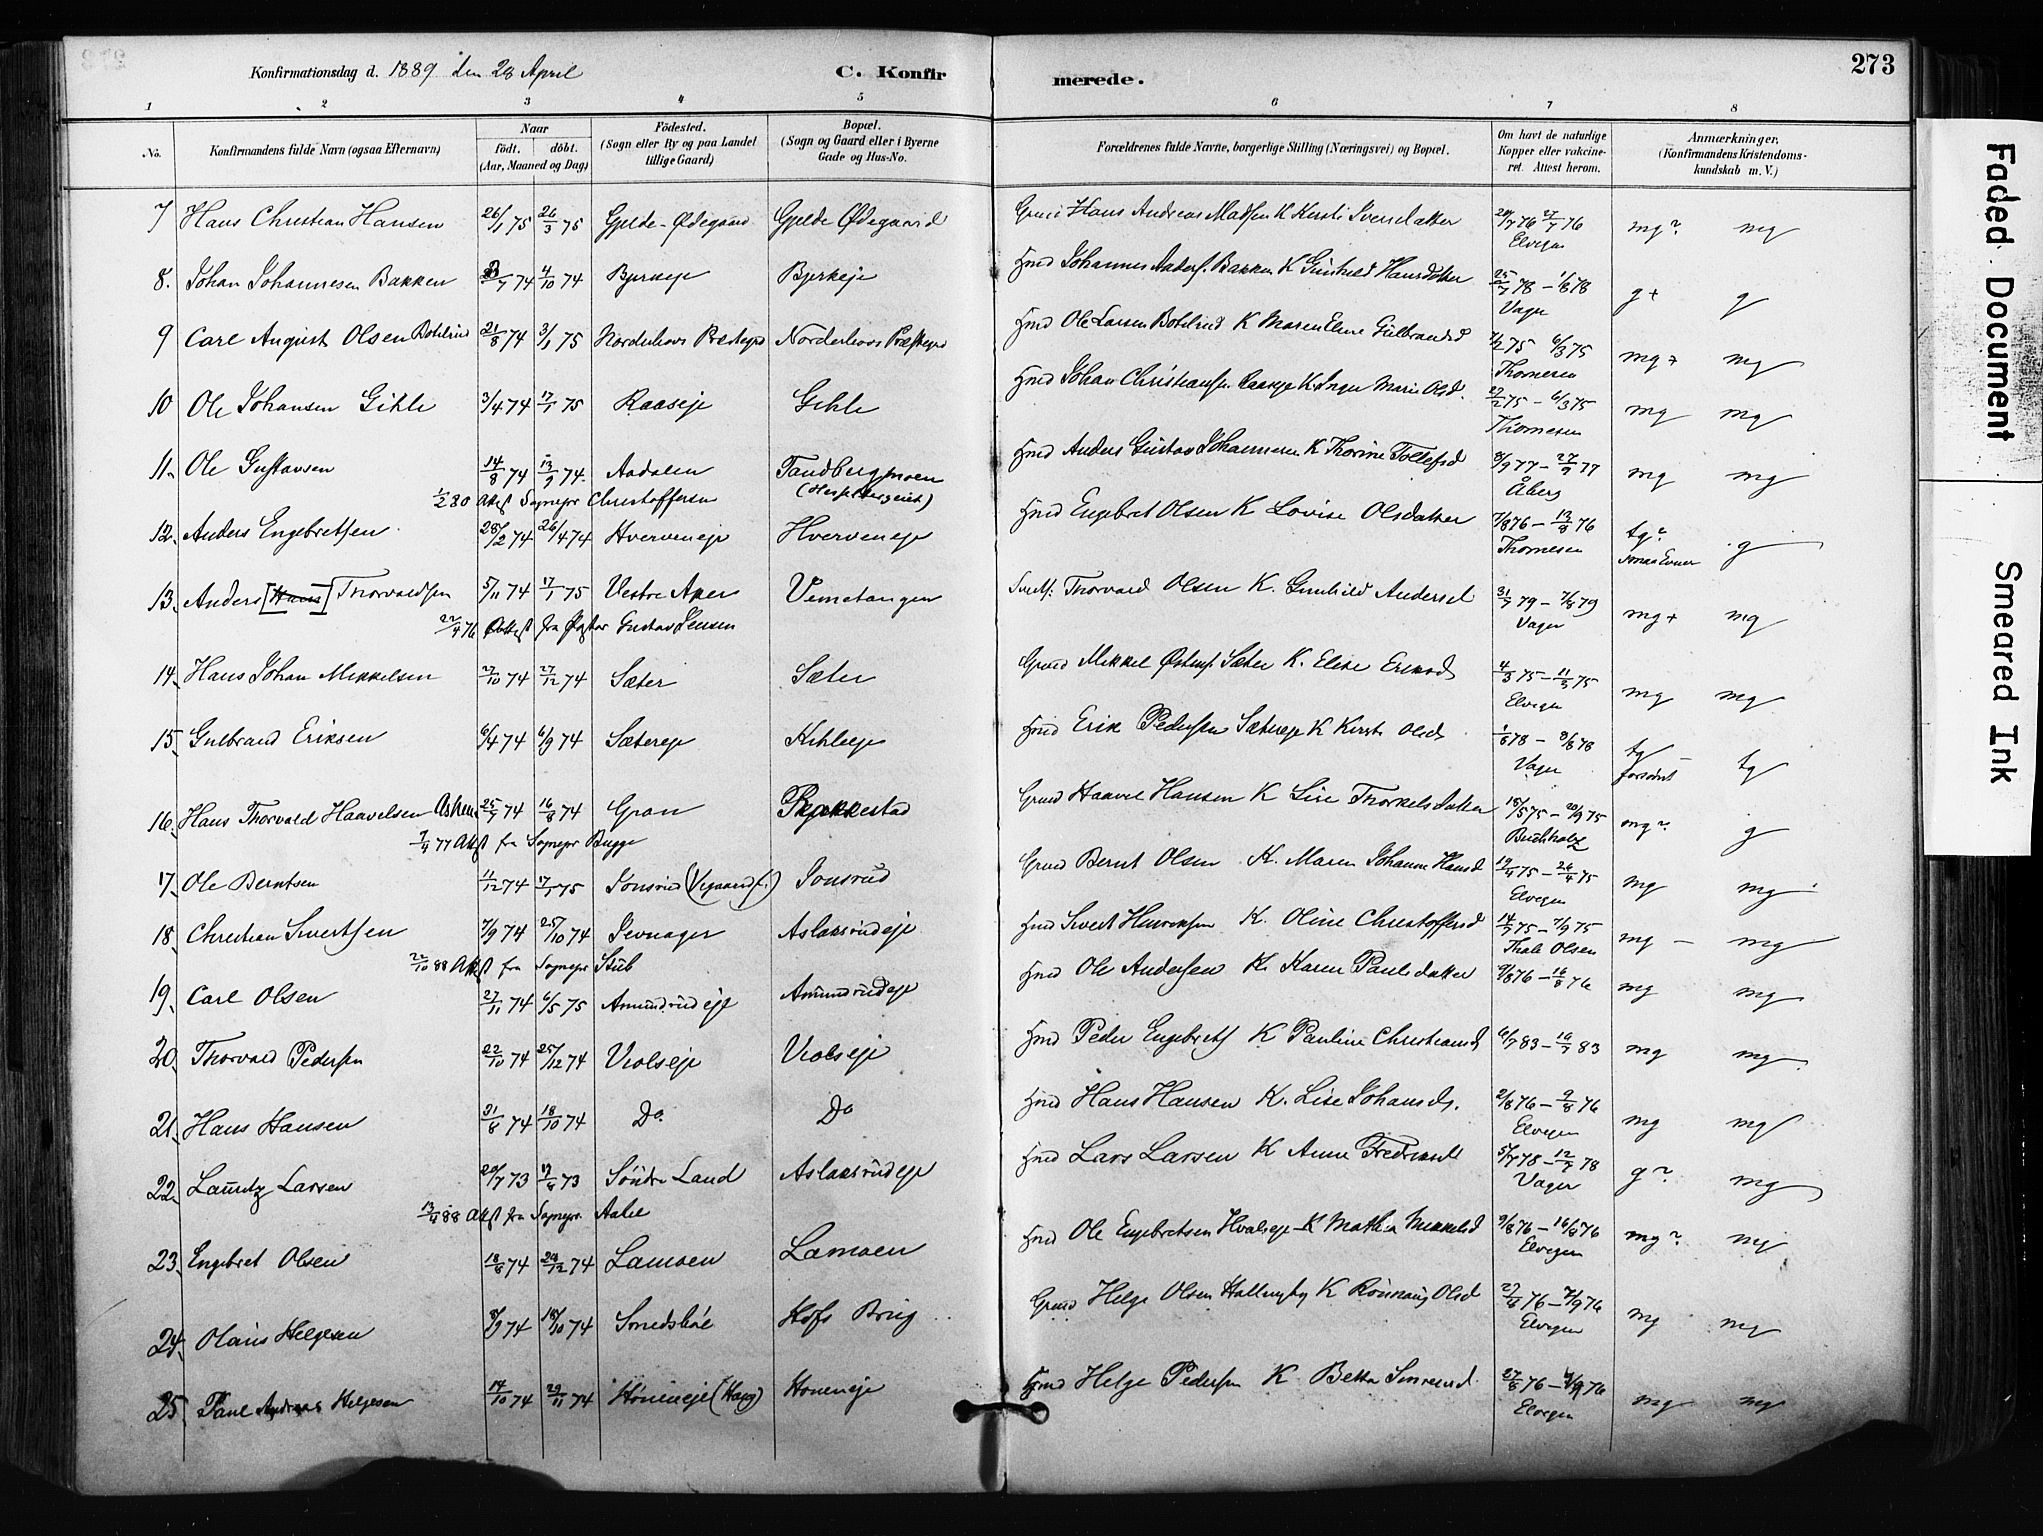 Konfirmationsdag d. 1889 den 28 April C. Konfirmerede. 273
1 2 3 4 5 6 7 8
No. Konfirmandens fulde Navn (ogsaa Efternavn) Naar födt. döbt. (Aar, Maaned og Dag) Födested. (Sogn eller By og paa Landet tillige Gaard) Bopæl. (Sogn og Gaard eller i Byerne Gade og Hus-No. Forældrenes fulde Navne, borgerlige Stilling (Næringsvei) og Bopæl. Om havt de naturlige Kopper eller vakcineret. Attest herom. Anmærkninger, (Konfirmandens Kristendomskundskab m. V.)
7 Hans Christian Hansen 26/1 75 26/3 75 Gjelde-Ødegaard Gjelde Ødegaard Hans Andreas Madsen K Kersti Iversdatter 27/7 76 Elvegen mg? mg
8. Johan Johannesen Bakken 74 4/10 74 Bjerkeje Bjerkeje Hmd Johannes Anders. Bakken K Gunhild Hansdatter 25/7 78 - 1/8 78 Vager g+ g
9 Carl August Olsen Botilrud 21/8 74 3/1 75 Norderhovs Præstegd Norderhovs Præstegd Hmd Ole Larsen Botilrud K Maren Elene Gulbrandsd 7/2 75 6/3 75 Thornesen mg+ mg
10 Ole Johansen Gihle 3/4 74 17/1 75 Raaseje Gihle Hmd Johan Christiansen Raaseje K Inger Marie Olsd. 27/2 75 - 6/3 75 Thornesen mg mg
11. Ole Gustavsen 14/8 74 13/9 74. Aadalen Tandbergmoen Hmd Anders Gustav Johannesen K Thorine Tollefsd 8/9 77 - 27/9 77 Åberg mg mg
1/2 80 Attest Sognepr Christoffersen
12. Anders Engebretsen 28/2 74 26/4 74 Hverveneje Hverveneje Hmd Engebret Olsen K Lovise Olsdatter 7/8 76 - 13/8 76 Thornesen tg? smaa Evner g
13. Anders [Hans] Thorvaldsen 5/11 74 17/1 75 Vestre Aker Vemetangen Thorvard Olsen K. Gunhild Andersd 31/7 79 - 7/8 79 Vager mg+ mg
22/4 76 Attest fra Gustav Jensen
14. Hans Johan Mikkelsen 27/10 74 27/12 74 Sæter Sæter Grmd Mikkel Østens. Sæter K. Elise Eriksd 4/3 75 - 11/3 75 Elvegen mg mg
15. Gulbrand Eriksen 6/4 74 6/9 74 Sætereje Kihleeje Hmd Erik Pedersen Sætereje K Kersti Olsd 1/8 78 - 8/8 78 Vager tg forsömt tg
16. Hans Thorvald Haavelsen 25/7 74 16/8 74 Gran Pjækkestad Grmd Haavel Hansen K Lise Thorkelsdatter 18/5 75 - 20/9 75 Buchholz mg? g
7/4 77 Attest fra Sognepr Bugge
17. Ole Berntsen 11/12 74 17/1 75 Jonsrud Jonsrud Grmd Bernt Olsen K. Maren Johanne Hansd 19/4 75 - 26/4 75 Elvegen mg mg
18. Christian Sivertsen 7/9 74 25/10 74 Jevnager Aslaksrudeje Hmd Sivert Henriksen K. Oline Christoffersd 14/7 75 - 7/9 75 Thale Olsen mg - mg
22/10 88 Attest fra Sognepr Stub
19. Carl Olsen 27/11 74 6/5 75 Amundrudeje Amundrudeje Hmd Ole Andersen K. Karen Paulsdatter 9/8 76 - 16/8 76 mg mg
20. Thorvald Pedersen 22/10 74 25/12 74 Veolseje Veolseje Hmd Peder Engebrets K Pauline Christiansd 6/7 83 - 16/7 83 mg mg
21. Hans Hansen 31/8 74 18/10 74 Do Do Hmd Hans Hansen K. Lise Johansd. 2/8 76 - 9/8 76 Elvegen mg mg
22. Lauritz Larsen 20/7 73 73 Söndre Land Aslaksrudeje Hmd Lars Larsen K Anne Fredriksd 5/7 78 - 12/7 78 Vager g? mg
13/4 88 Attest fra Sognepr. Aabel
23. Engebret Olsen 18/8 74 29/12 74 Lamoen Lamoen Hmd Ole Engebretsen Hvalseje K Mathia Mikkelsd 9/8 76 - 16/8 76 Elvegen mg? mg
24. Olaus Helgesen 8/9 74 18/10 74 Smedsböl Hofs Brug Grmd Helge Olsen Hallingby K Rönnaug Olsd 27/8 76 - 4/9 76 Elvegen mg mg
25. Paul Andreas Helgesen 14/10 74 29/11 74 Höneneje (Haug) Höneneje Hmd Helge Pedersen K Iversd. 27/8 76 - 4/9 76 Elvegen mg mg
Faded Document
Smeared Ink